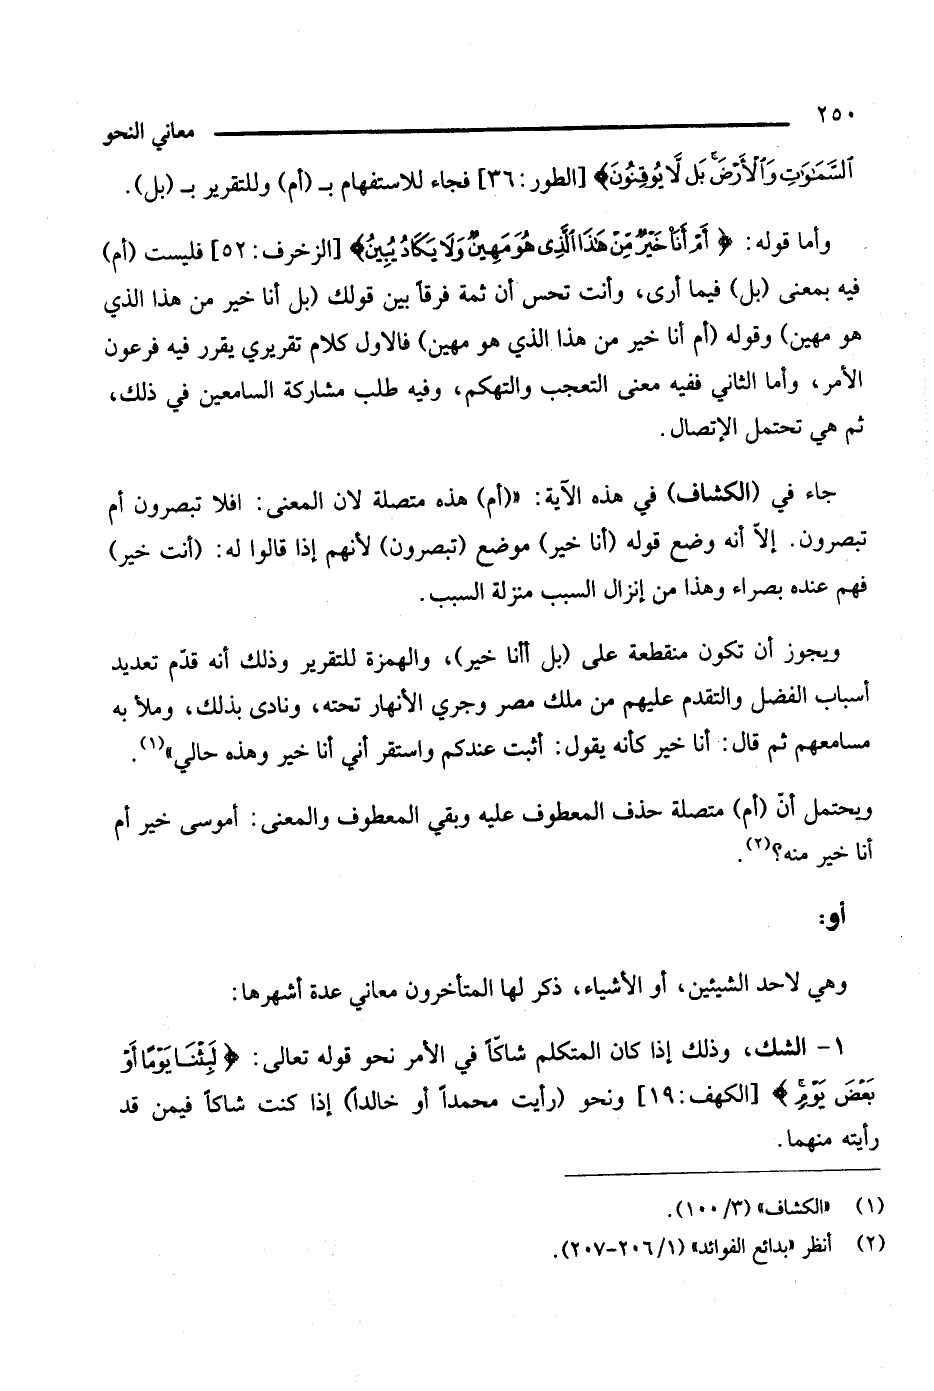 ٢٥٠
معاني النحو
السَّمَٰوَٰتِ وَٱلْأَرْضَ ۚ بَل لَّا يُوقِنُونَ﴾ [الطور: ٣٦] فجاء للاستفهام بـ (أم) وللتقرير بـ (بل).
وأما قوله: ﴿أَمْ أَنَا۠ خَيْرٌ مِّنْ هَٰذَا ٱلَّذِى هُوَ مَهِينٌ وَلَا يَكَادُ يُبِينُ﴾ [الزخرف: ٥٢] فليست (أم)
فيه بمعنى (بل) فيما أرى، وأنت تحس أن ثمة فرقاً بين قولك (بل أنا خير من هذا الذي
هو مهين) وقوله (أم أنا خير من هذا الذي هو مهين) فالاول كلام تقريري يقرر فيه فرعون
الأمر، وأما الثاني ففيه معنى التعجب والتهكم، وفيه طلب مشاركة السامعين في ذلك،
ثم هي تحتمل الإتصال.
جاء في (الكشاف) في هذه الآية: «(أم) هذه متصلة لان المعنى: افلا تبصرون أم
تبصرون. إلاّ أنه وضع قوله (أنا خير) موضع (تبصرون) لأنهم إذا قالوا له: (أنت خير)
فهم عنده بصراء وهذا من إنزال السبب منزلة السبب.
ويجوز أن تكون منقطعة على (بل أأنا خير)، والهمزة للتقرير وذلك أنه قدّم تعديد
أسباب الفضل والتقدم عليهم من ملك مصر وجري الأنهار تحته، ونادى بذلك، وملأ به
مسامعهم ثم قال: أنا خير كأنه يقول: أثبت عندكم واستقر أني أنا خير وهذه حالي»(١).
ويحتمل أنّ (أم) متصلة حذف المعطوف عليه وبقي المعطوف والمعنى: أموسى خير أم
أنا خير منه؟(٢).
أو:
وهي لاحد الشيئين، أو الأشياء، ذكر لها المتأخرون معاني عدة أشهرها:
١- الشك، وذلك إذا كان المتكلم شاكّاً في الأمر نحو قوله تعالى: ﴿لَبِثْنَا يَوْمًا أَوْ
بَعْضَ يَوْمٍ ۚ﴾ [الكهف: ١٩] ونحو (رأيت محمداً أو خالداً) إذا كنت شاكاً فيمن قد
رأيته منهما.
(١) «الكشاف» (٣/ ١٠٠).
(٢) أنظر «بدائع الفوائد» (١/ ٢٠٦-٢٠٧).